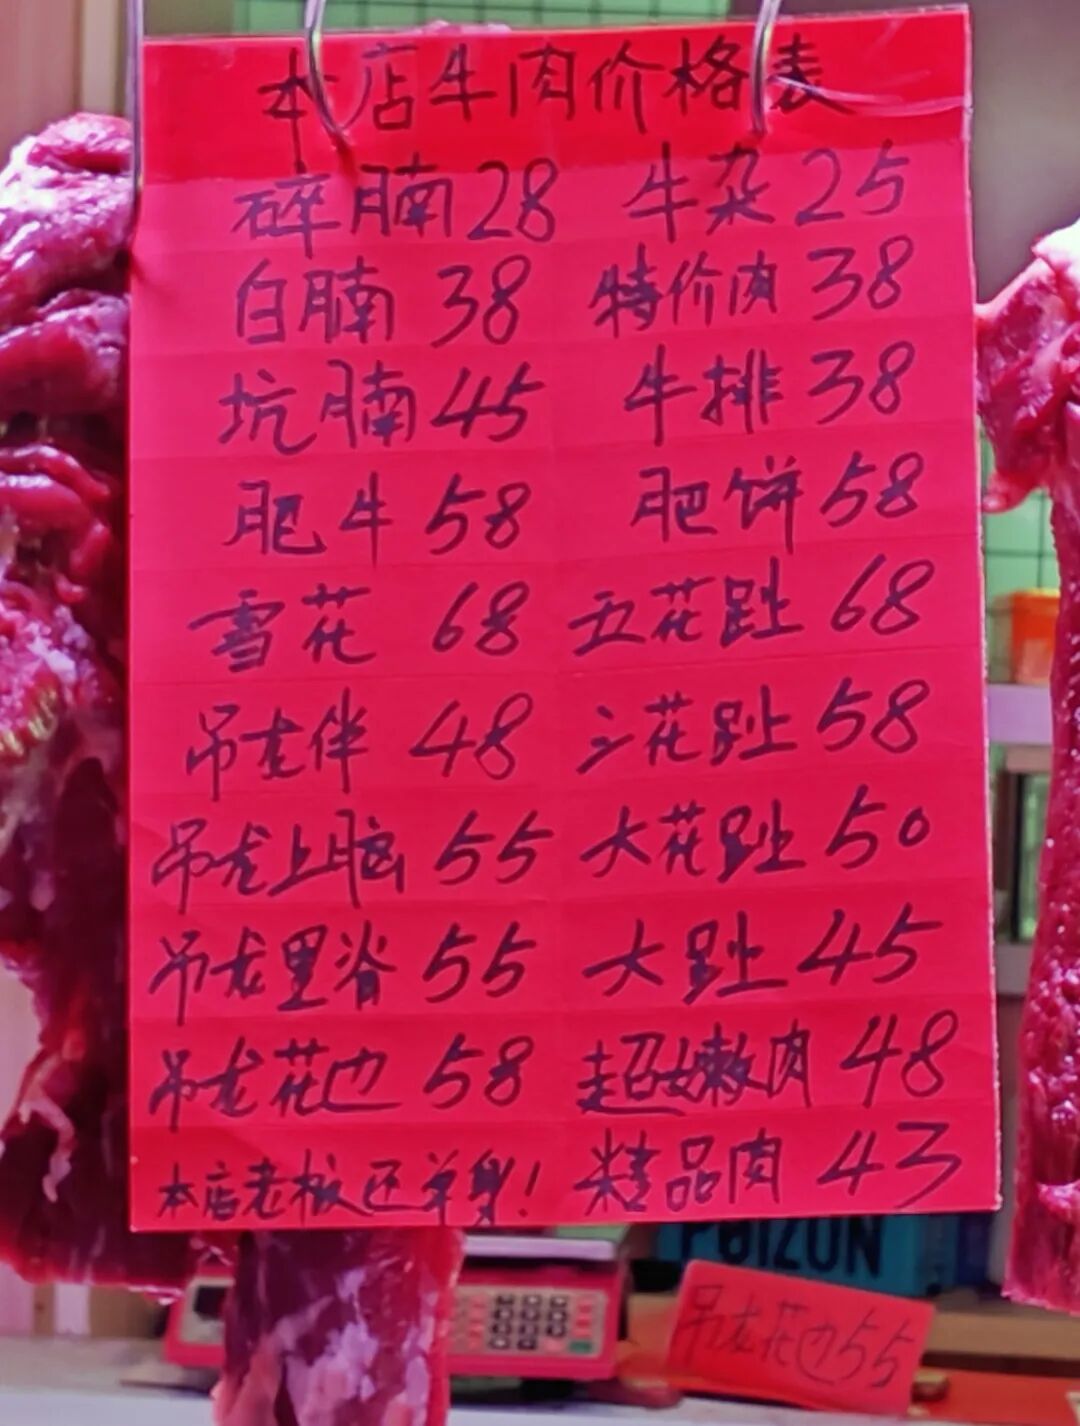 本店牛肉价格表
碎腩28 牛杂25
白腩38 特价肉38
坑腩45 牛排38
肥牛58 肥饼58
雪花68 五花趾68
吊龙伴48 三花趾58
吊龙上脑55 大花趾50
吊龙里脊55 大趾45
吊龙花边58 超嫩肉48
本店老板还单身! 精品肉43
POIZON
吊龙花边55